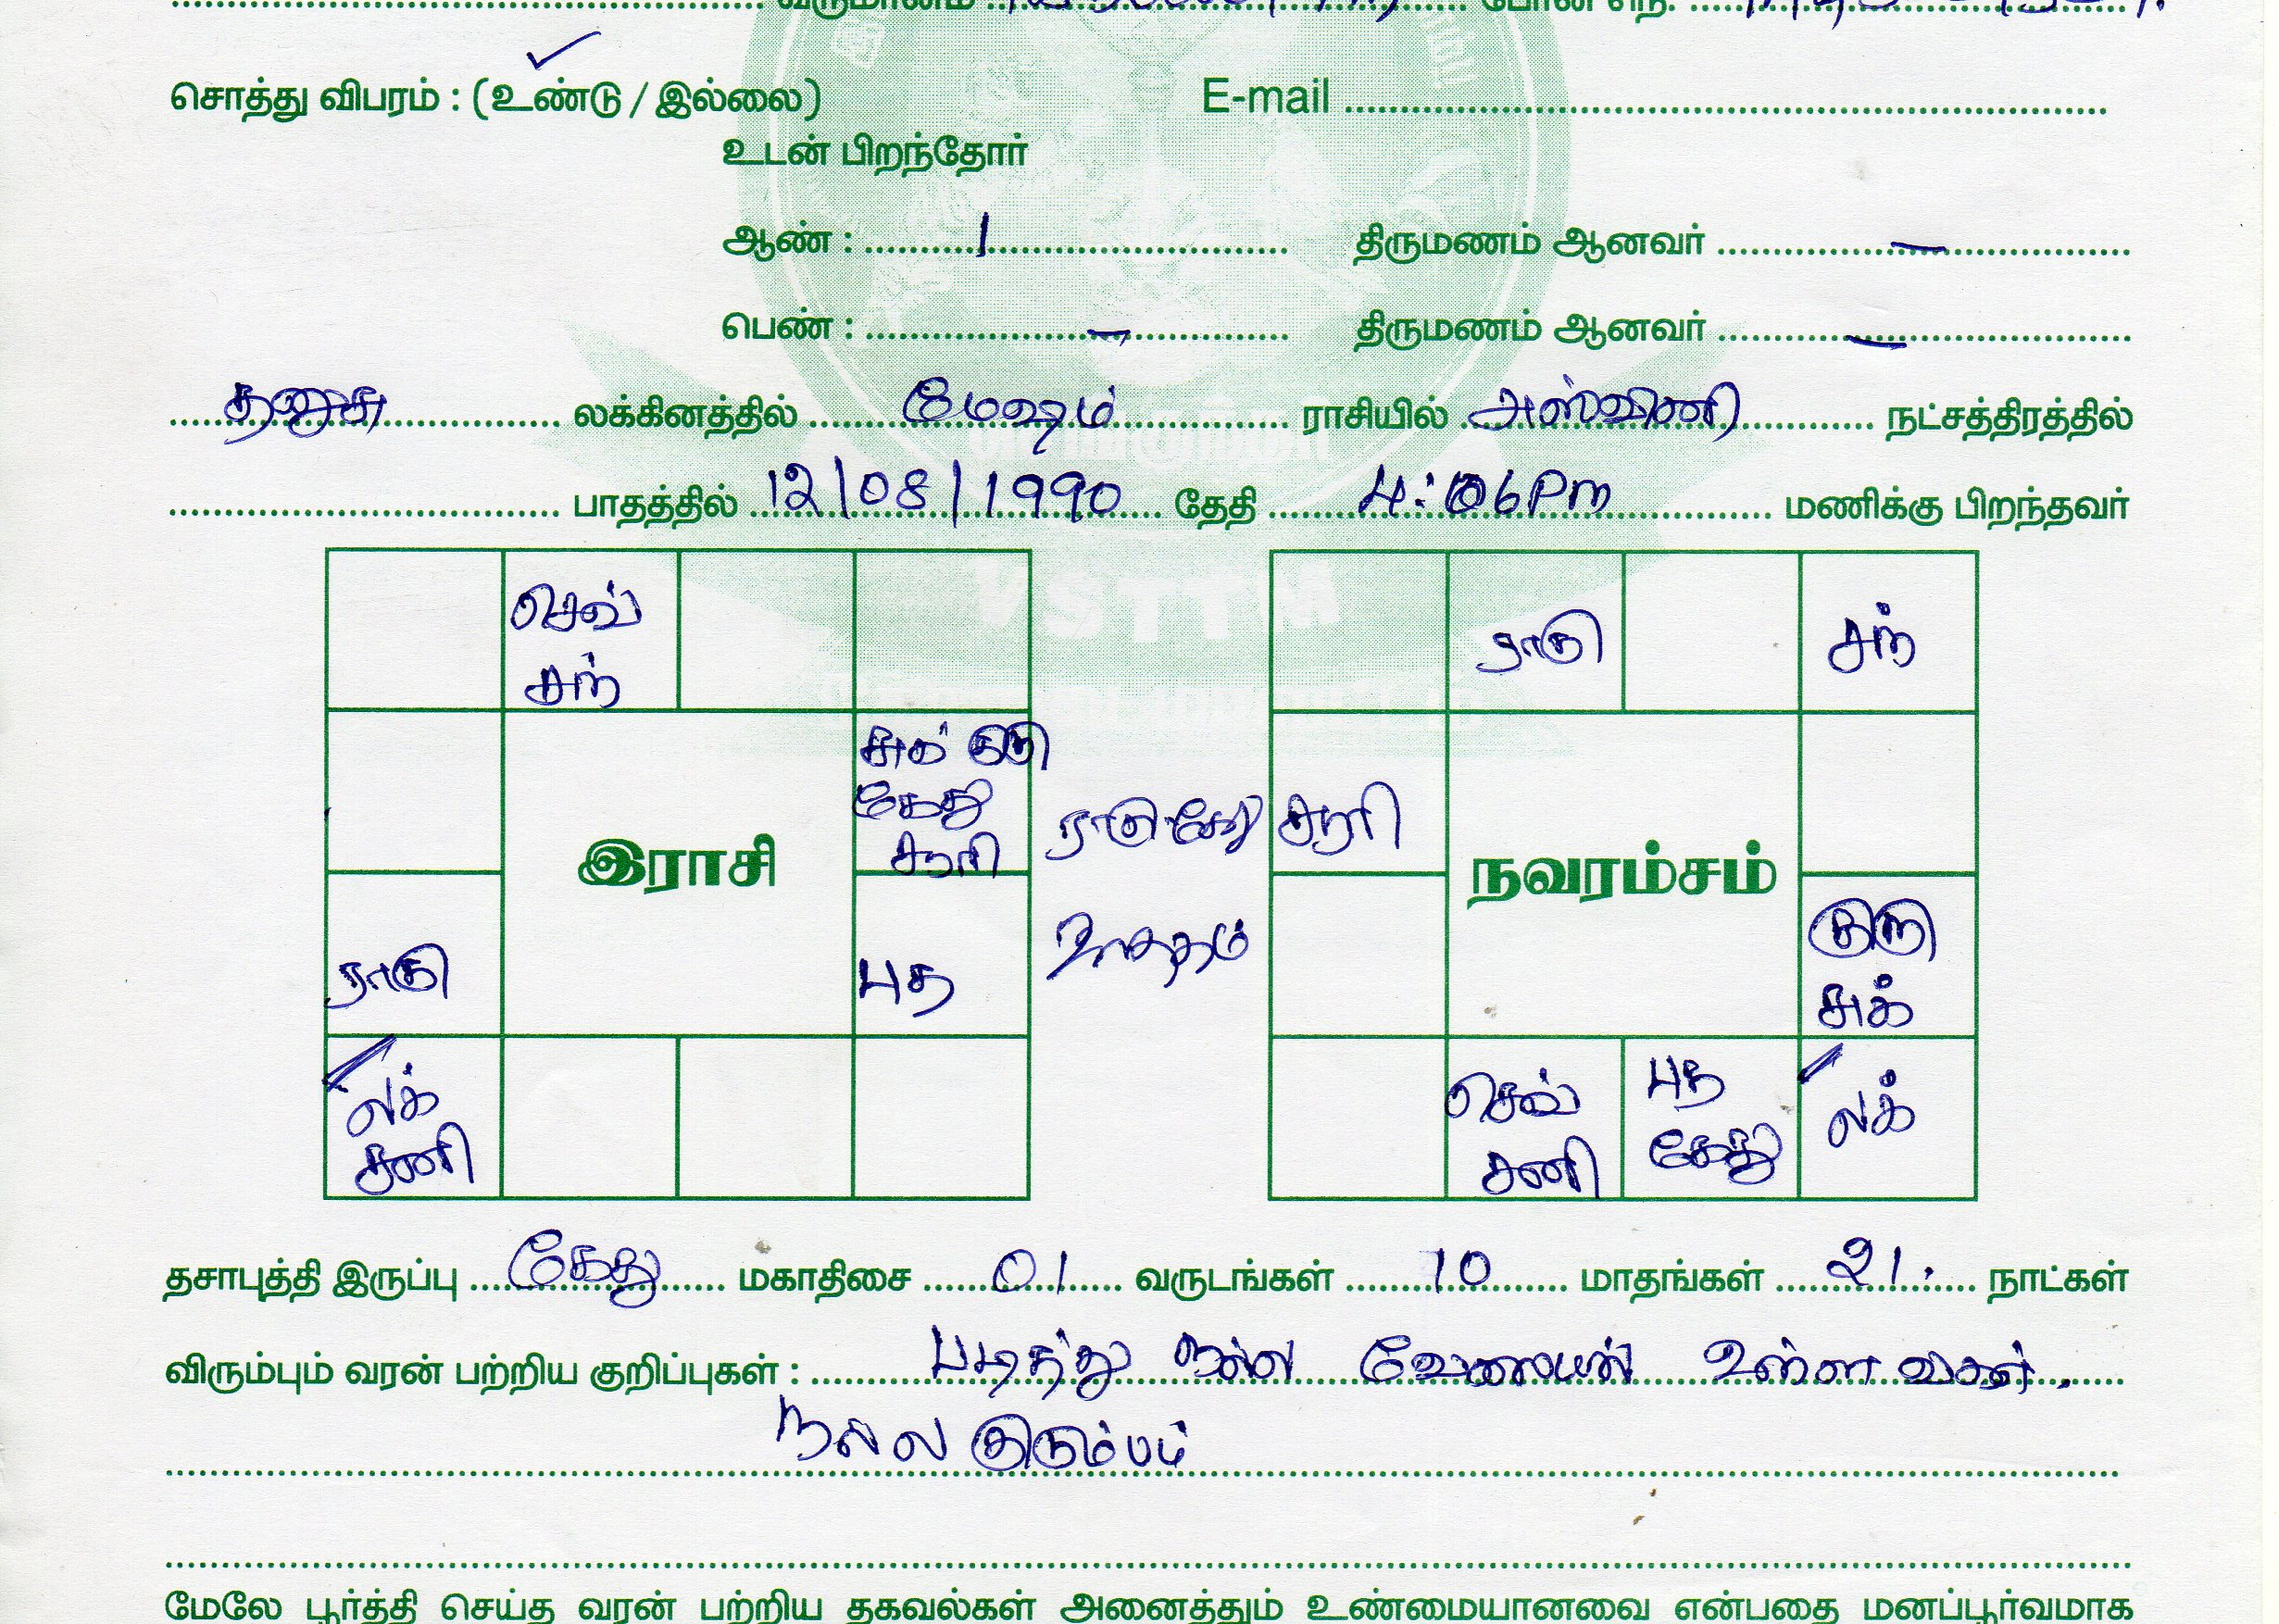 வருமானம் போன் எந்.
சொத்து விபரம் : (உண்டு / இல்லை) E-mail
உடன் பிறந்தோர்
ஆண் : 1 திருமணம் ஆனவர் —
பெண் : — திருமணம் ஆனவர் —
தனுசு லக்கினத்தில் மேஷம் ராசியில் அஸ்வினி நட்சத்திரத்தில்
பாதத்தில் 12/08/1990 தேதி 4:06Pm மணிக்கு பிறந்தவர்
செவ் ராகு சந்
சந்
சுக் குரு
கேது
சூரி ராகு கேது சூரி
இராசி நவரம்சம்
ராகு புத குரு
சுக்
லக் செவ் புத லக்
சனி சனி கேது
தசாபுத்தி இருப்பு கேது மகாதிசை 01 வருடங்கள் 10 மாதங்கள் 21. நாட்கள்
விரும்பும் வரன் பற்றிய குறிப்புகள் : படித்து நல்ல வேலையில் உள்ளவர்கள்.
நல்ல குடும்பம்
மேலே பூர்த்தி செய்த வரன் பற்றிய தகவல்கள் அனைத்தும் உண்மையானவை என்பதை மனப்பூர்வமாக